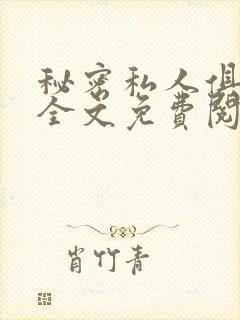 秘密私人俱
全文免费阅
肖竹青